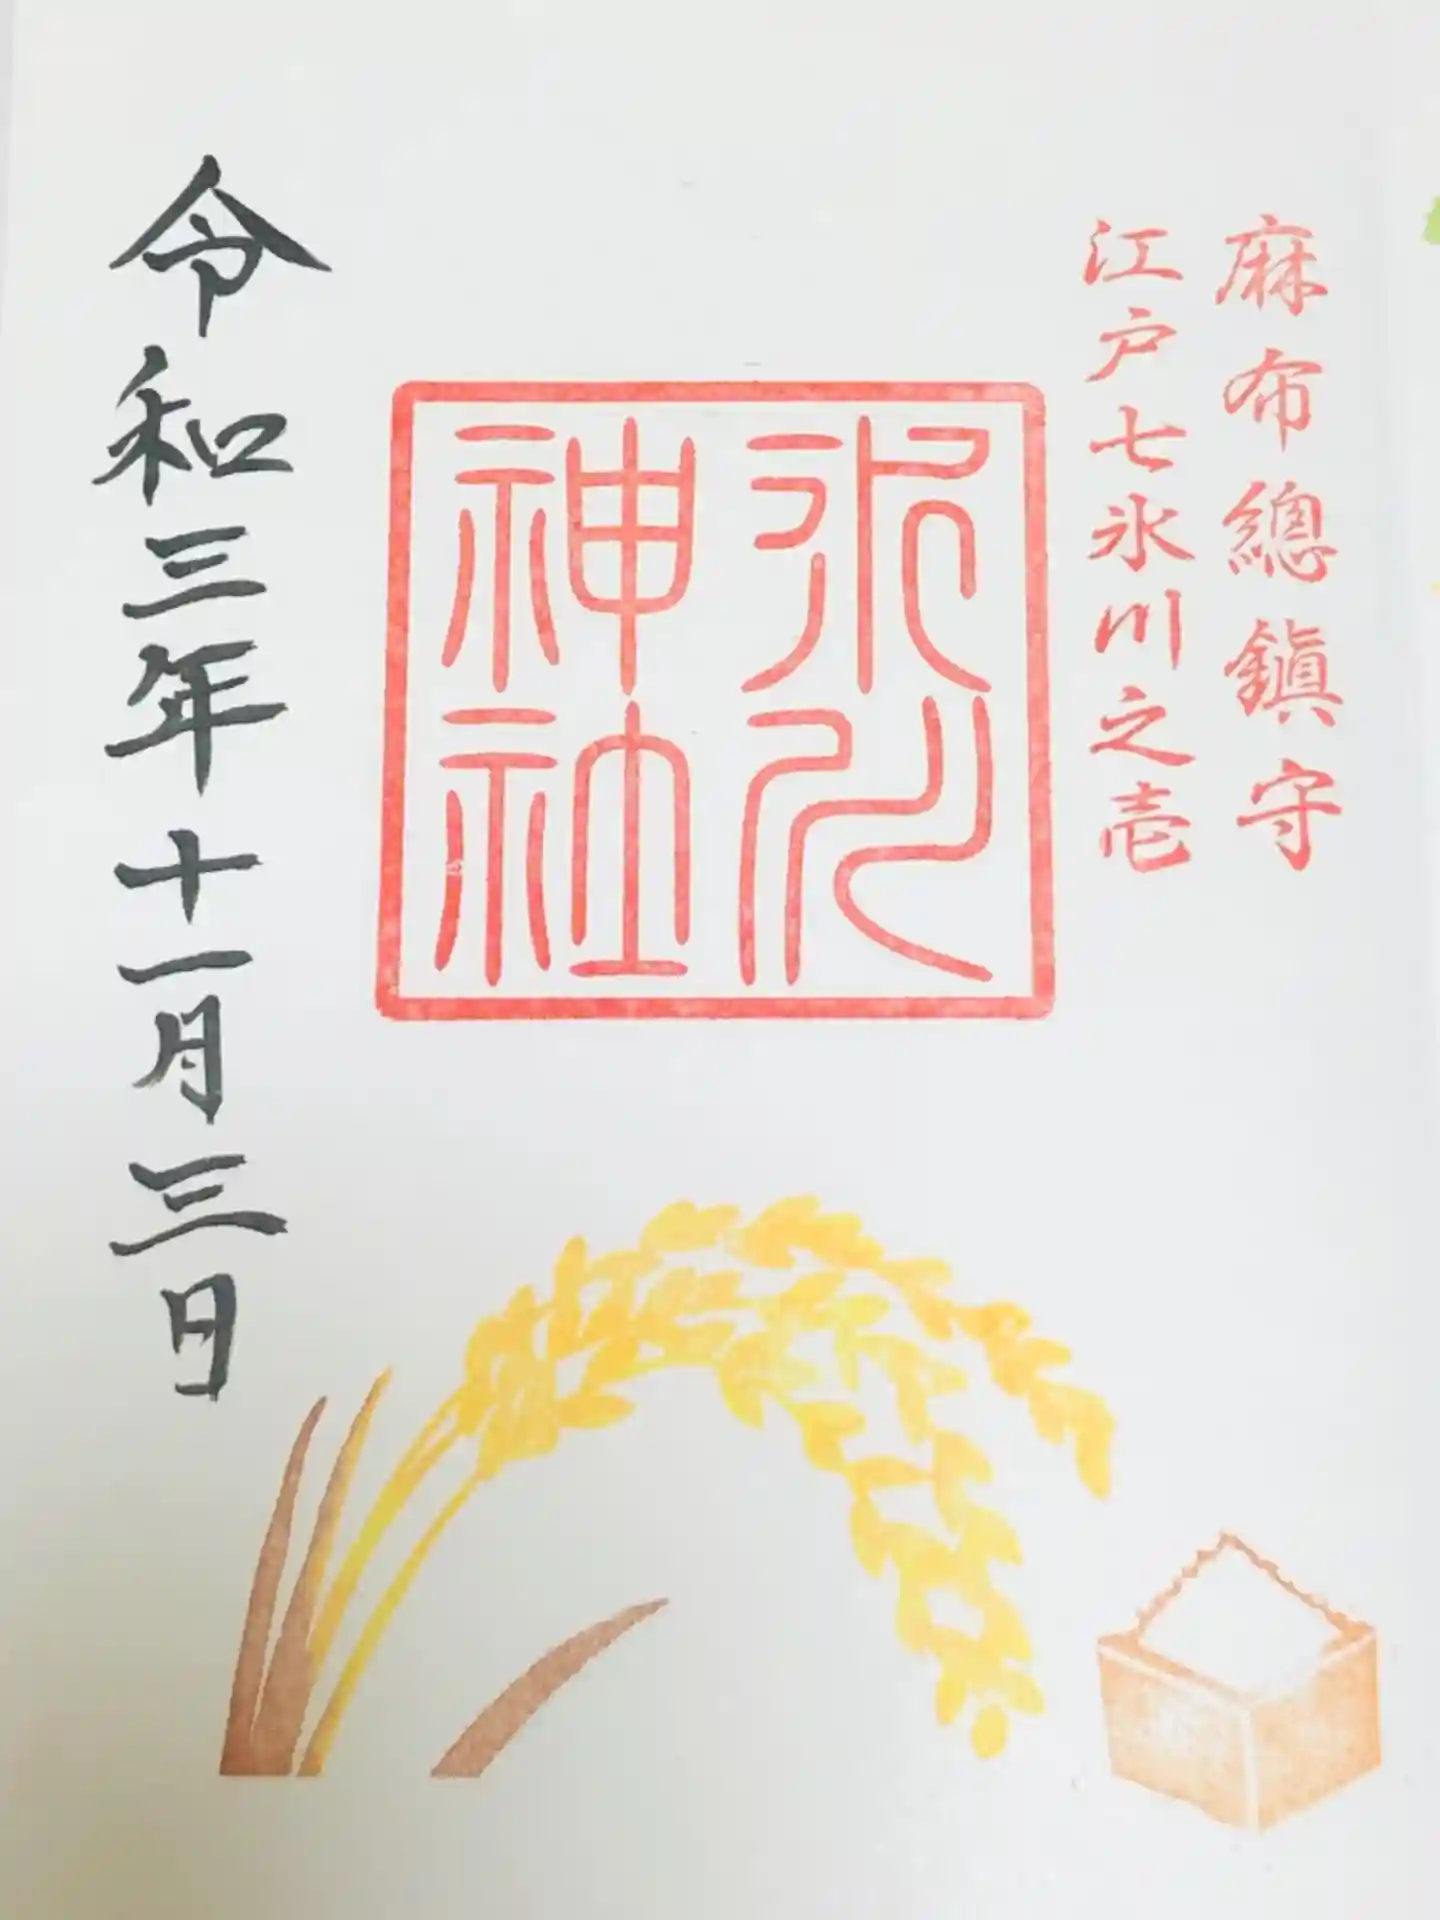 麻布總鎭守
江戸七氷川之壱
氷川
神社
令和三年十一月三日